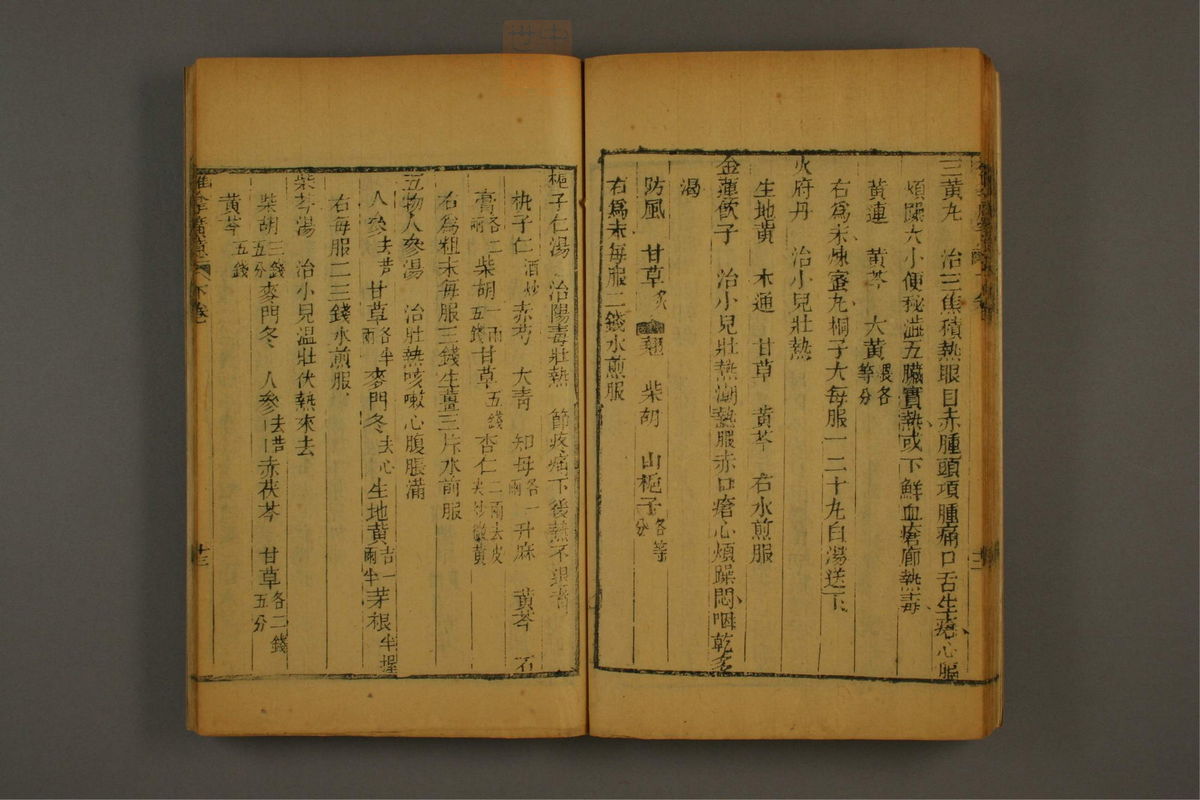 三黃丸　治三焦積熱眼目赤腫頭項腫痛口舌生瘡心膈
煩躁大小便秘澁五臟實熱或下鮮血瘡癤熱毒
黃連　黃芩　大黃煨各等分
右爲末煉蜜丸桐子大每服一二十丸白湯送下
火府丹　治小兒壯熱
生地黄　木通　甘草　黃芩　右水煎服
金蓮飲子　治小兒壯熱潮熱眼赤口瘡心煩躁悶咽乾多
渴
防風　甘草炙　翹　柴胡　山梔子各等分
右爲末每服二錢水煎服
梔子仁湯　治陽毒壯熱　節疼痛下後熱不退者
梔子仁酒炒　赤芍　大青　知母各一兩　升麻　黃芩　石
膏各二兩　柴胡一兩五錢　甘草五錢　杏仁二兩去皮尖炒微黄
右爲粗末每服三錢生薑三片水煎服
五物人參湯　治壯熱咳嗽心腹脹滿
人參去苗　甘草各半兩　麥門冬去心　生地黃一兩半　茅根半握
右每服二三錢水煎服
柴芩湯　治小兒温壯伏熱來去
柴胡三錢五分　麥門冬　人參去苗　赤茯苓　甘草各二錢五分
黃芩五錢
下卷